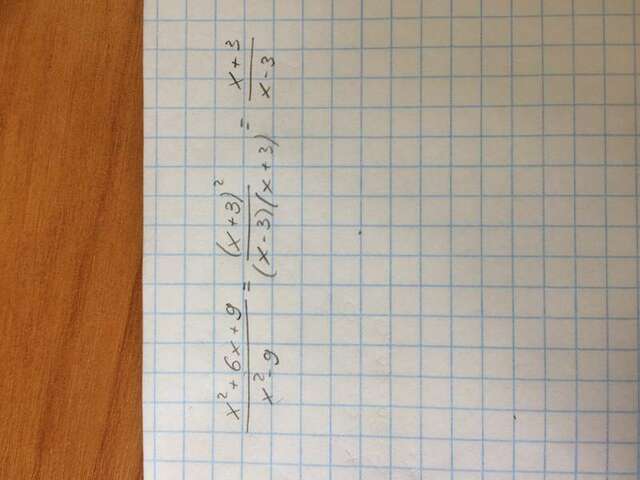 x² + 6x + 9 / x² - 9 = (x + 3)² / (x - 3)(x + 3) = x + 3 / x - 3